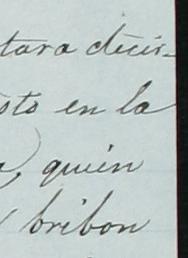 tara decir-
sto en la
a, quien
bribon